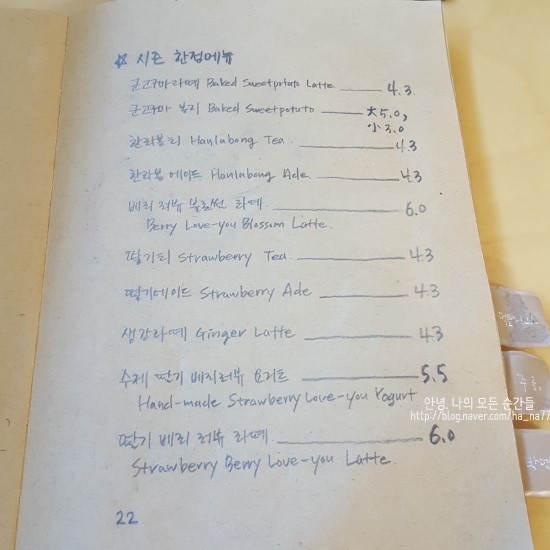 ☆ 시즌 한정메뉴
군고구마라떼 Baked Sweetpotato Latte 4.3
군고구마 봉지 Baked Sweetpotuto 大5.0,
小3.0
한라봉티 Hanlabong Tea 4.3
한라봉 에이드 Hanlabong Ade 4.3
베리 러뷰 블로썸 라떼 6.0
Berry Love-you Blossom Latte.
딸기티 Strawberry Tea 4.3
딸기에이드 Strawberry Ade 4.3
생강라떼 Ginger Latte 4.3
수제 딸기 베리러뷰 요거트 5.5
Hand-made Strawberry Love-you Yogurt
딸기 베리 러뷰 라떼 6.0
Strawberry Berry Love-you Latte.
22
안녕, 나의 모든 순간들
http://blog.naver.com/ha_na77